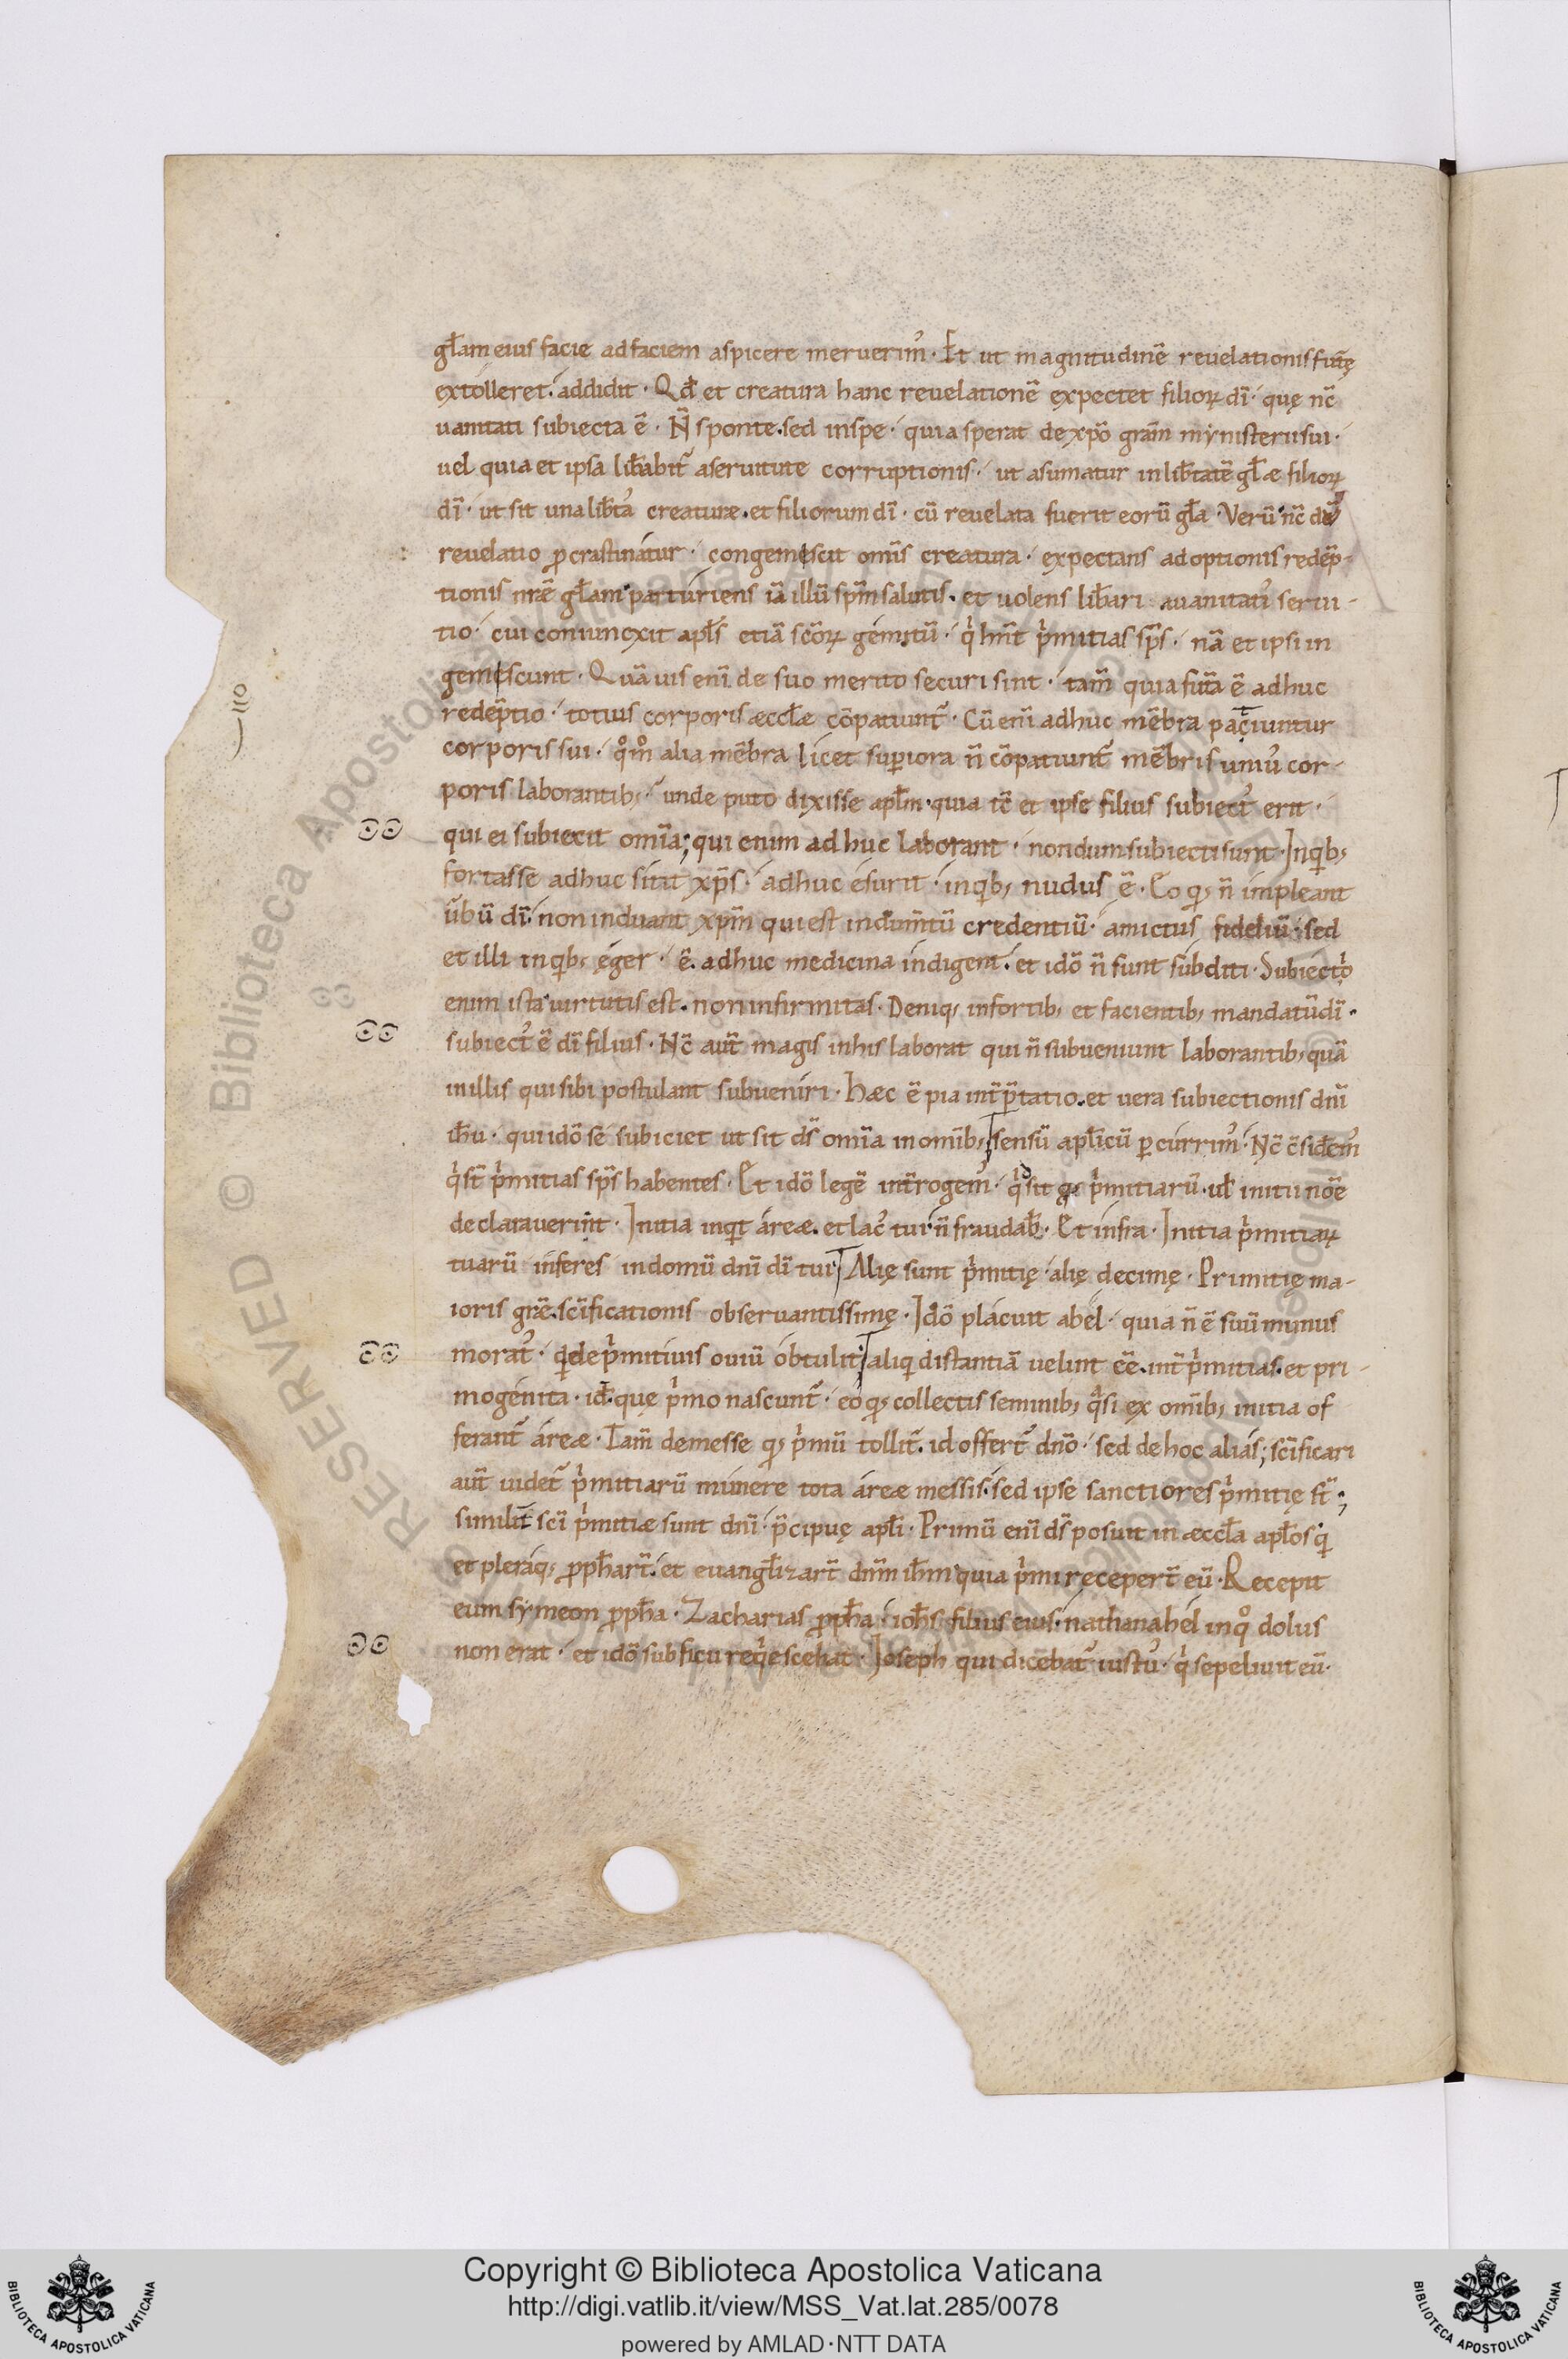 gl̄am eius facie ad faciem aspicere meruerim᾽. Et ut magnitudinē reuelationis fut̄ę
extolleret. addidit. Qd̄ et creatura hanc reuelationē expectet filioꝝ dī. quę nc̄
uanitati subiecta ē. N̄ sponte. sed inspe. quia sperat de xp̄o grām mẏnisterii sui.
uel quia et ipsa lib̄abit᷑ a seruitute corruptionis. ut asumatur in lib̄tatē gl̄æ filioꝝ
dī. ut sit una lib̄ta᾽ creaturæ. et filiorum dī. cū reuelata fuerit eorū gl̄a. Verū nc̄ dū
reuelatio ꝓcrastinatur. congemescit om̄is creatura. expectans adoptionis redēp-
tionis nr̄ē gl̄am parturiens iā illū sp̄m salutis. et uolens lib̄ari a uanitati᾽ serui-
tio. cui coniunexit apl̄s etiā sc̄oꝝ gemitū. qͥ hn̄t pͥmitias sp̄s. nā et ipsi in
gemescunt. Quāuis enī de suo merito securi sint. tam̄ quia fut̄a ē adhuc
redēptio. totius corporis æccl̄æ cōpatiunt᷑. Cū enī adhuc mēbra paciuntur
corporis sui. qͦmͦ alia mēbra licet suꝑiora n̄ cōpatiunt᷑ mēbris uniu᾽ cor-
poris laborantib; unde puto dixisse apl̄m. quia tc̄ et ipse filius subiect᾽ erit.
qui ei subiecit om̄ia; qui enim adhuc laborant. nondum subiecti sunt. Inqib;
fortasse adhuc sitit xp̄s. adhuc esurit. inqib; nudus ē. Eo qd; n̄ impleant
ūbū dī. non induant xp̄m qui est indum̄tū credentiū. amictus fideliū. sed
et illi inqib; ęger. ē. adhuc medicina indigent. et idō n̄ sunt subditi. Subiectͦ
enim ista uirtutis est. non infirmitas. Deniq; in fortib; et facientib; mandatū dī.
subiect᾽ ē dī filius. Nc̄ aūt magis in his laborat qui n̄ subueniunt laborantib; quā
in illis qui sibi postulant subueniri. Hæc ē pia int̄ꝑtatio. et uera subiectionis dn̄i
ih̄u. qui idō se subiciet ut sit ds̄ om̄ia in omib; sensū apl̄icū ꝑcurrim᾽. Nc̄ c̄sidem᾽
qͥ st̄ pͥmitias sp̄s habentes. Et idō legē int̄rogem᾽. qͥd sit pͥmitiarū. ul̄ initii nōe
declarauerint. Initia inqit áreæ. et lac᾽ tui n̄ fraudab̄. Et infra. Initia pͥmitiaꝝ
tuarū inferes in domū dn̄i dī tui Alię sunt pͥmitię. alię decimę. Primitię ma-
ioris grē. sc̄ificationis obseruantissimę. Idō placuit abel. quia n̄ ē suū munus
morat᾽. qi de pͥmitiuis ouiū obtulit aliqi distantiā uelint cē. int̄ pͥmitias. et pri-
mogenita. id̄. quę pͥmo nascunt᷑. eo qd; collectis seminib; qͣsi ex omib; initia of
ferant᷑ áreæ. Tam̄ de messe qd; pͥmū tollit᷑. id offert᷑ dn̄o. sed de hoc alias; sc̄ificari
aūt uidet᷑ pͥmitiarū munere tota áreæ messis. sed ipse sanctiores pͥmitię st̄;
similit̄ sc̄i pͥmitiæ sunt dn̄i. p̄cipuę apl̄i. Primū enī ds̄ posuit in æccl̄a apl̄os qi
et pleriq; ꝓph̄art̄. et euangl̄izart̄ dn̄m ih̄m quia pͥmi receꝑt̄ eū. Recepit
eum sẏmeon ꝓph̄a. Zacharias ꝓph̄a. ioh̄s filius eius. nathanahel inqͦ dolus
non erat. et idō sub ficu reqͥescebat. Ioseph qui dicebat᷑ iustu᾽. qͥ sepeliuit eū.
Copyright © Biblioteca Apostolica Vaticana
http://digi.vatlib.it/view/MSS_Vat.lat.285/0078
powered by AMLAD·NTT DATA
BIBLIOTECA APOSTOLICA VATICANA
BIBLIOTECA APOSTOLICA VATICANA